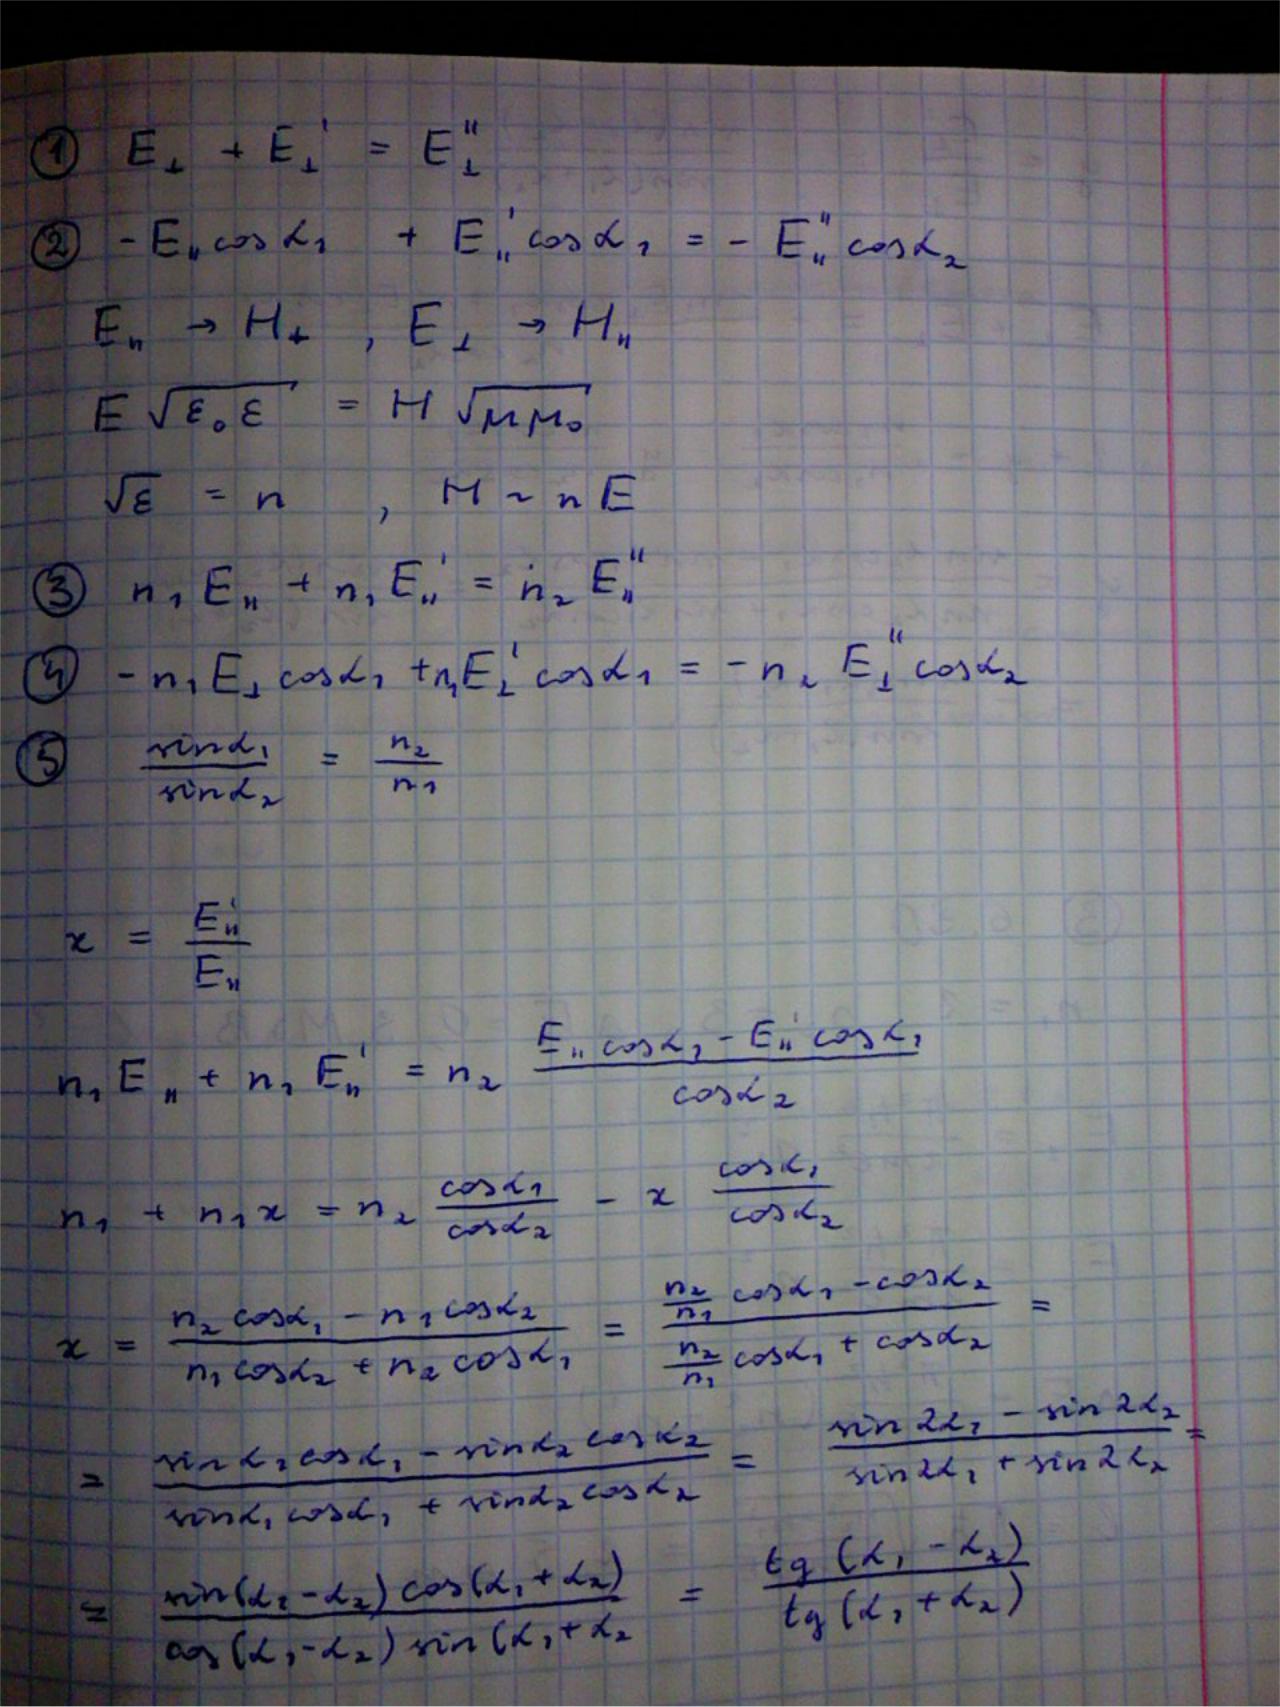 ① E⊥ + E⊥' = E⊥''
② -E∥ cosα₁ + E∥' cosα₁ = - E∥'' cosα₂
E∥ → H⊥ , E⊥ → H∥
E √ε₀ε = H √μμ₀
√ε = n , H ~ n E
③ n₁ E∥ + n₁ E∥' = n₂ E∥''
④ -n₁E⊥ cosα₁ + n₁E⊥' cosα₁ = - n₂ E⊥'' cosα₂
⑤ sinα₁ / sinα₂ = n₂ / n₁
x = E∥' / E∥
n₁ E∥ + n₁ E∥' = n₂ (E∥ cosα₁ - E∥' cosα₁) / cosα₂
n₁ + n₁x = n₂ cosα₁ / cosα₂ - x cosα₁ / cosα₂
x = (n₂ cosα₁ - n₁ cosα₂) / (n₁ cosα₂ + n₂ cosα₁) = (n₂/n₁ cosα₁ - cosα₂) / (n₂/n₁ cosα₁ + cosα₂) =
= (sinα₁ cosα₁ - sinα₂ cosα₂) / (sinα₁ cosα₁ + sinα₂ cosα₂) = (sin2α₁ - sin2α₂) / (sin2α₁ + sin2α₂) =
= sin(α₁-α₂) cos(α₁+α₂) / cos(α₁-α₂) sin(α₁+α₂ = tg(α₁-α₂) / tg(α₁+α₂)